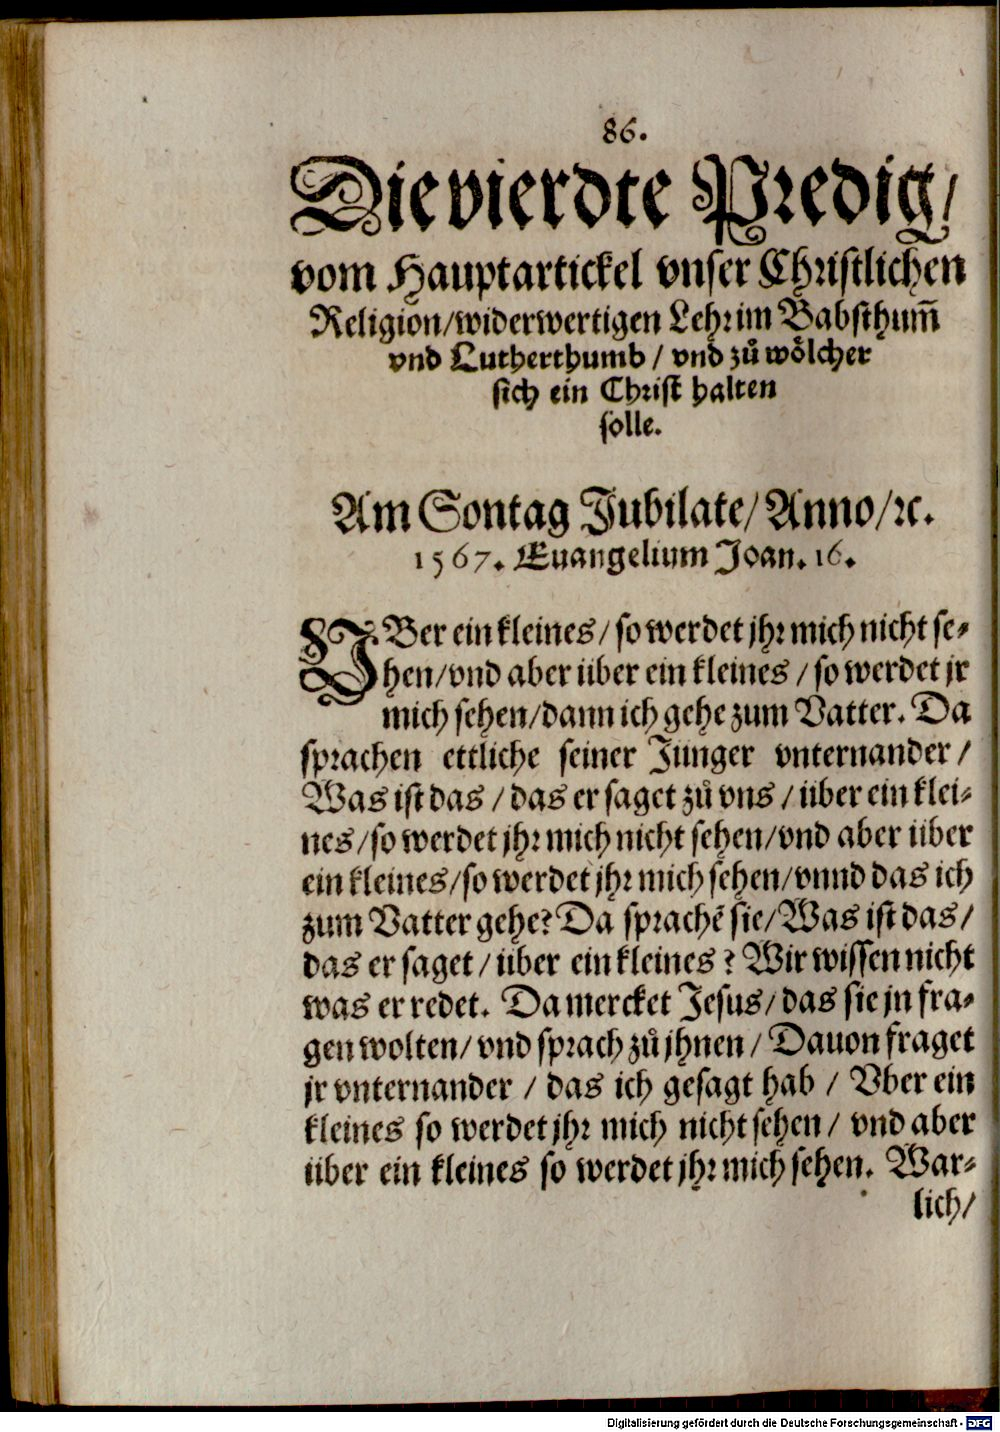 86.
Die vierdte Predig/
vom Hauptartickel vnser Christlichen
Religion/widerwertigen Lehr im Babsthum̄
vnd Lutherthumb / vnd zů wölcher
sich ein Christ halten
solle.
Am Sontag Jubilate/Anno/ꝛc.
1567. Euangelium Joan. 16.
VBer ein kleines / so werdet jhr mich nicht se-
hen/vnd aber über ein kleines / so werdet jr
mich sehen/dann ich gehe zum Vatter. Da
sprachen ettliche seiner Jünger vnternander /
Was ist das / das er saget zů vns / über ein klei-
nes/so werdet jhr mich nicht sehen/vnd aber über
ein kleines/so werdet jhr mich sehen/vnnd das ich
zum Vatter gehe? Da sprachē sie/Was ist das/
das er saget / über ein kleines? Wir wissen nicht
was er redet. Da mercket Jesus/das sie jn fra-
gen wolten/ vnd sprach zů jhnen / Dauon fraget
jr vnternander / das ich gesagt hab / Vber ein
kleines so werdet jhr mich nicht sehen / vnd aber
über ein kleines so werdet jhr mich sehen. War-
lich/
Digitalisierung gefördert durch die Deutsche Forschungsgemeinschaft - DFG